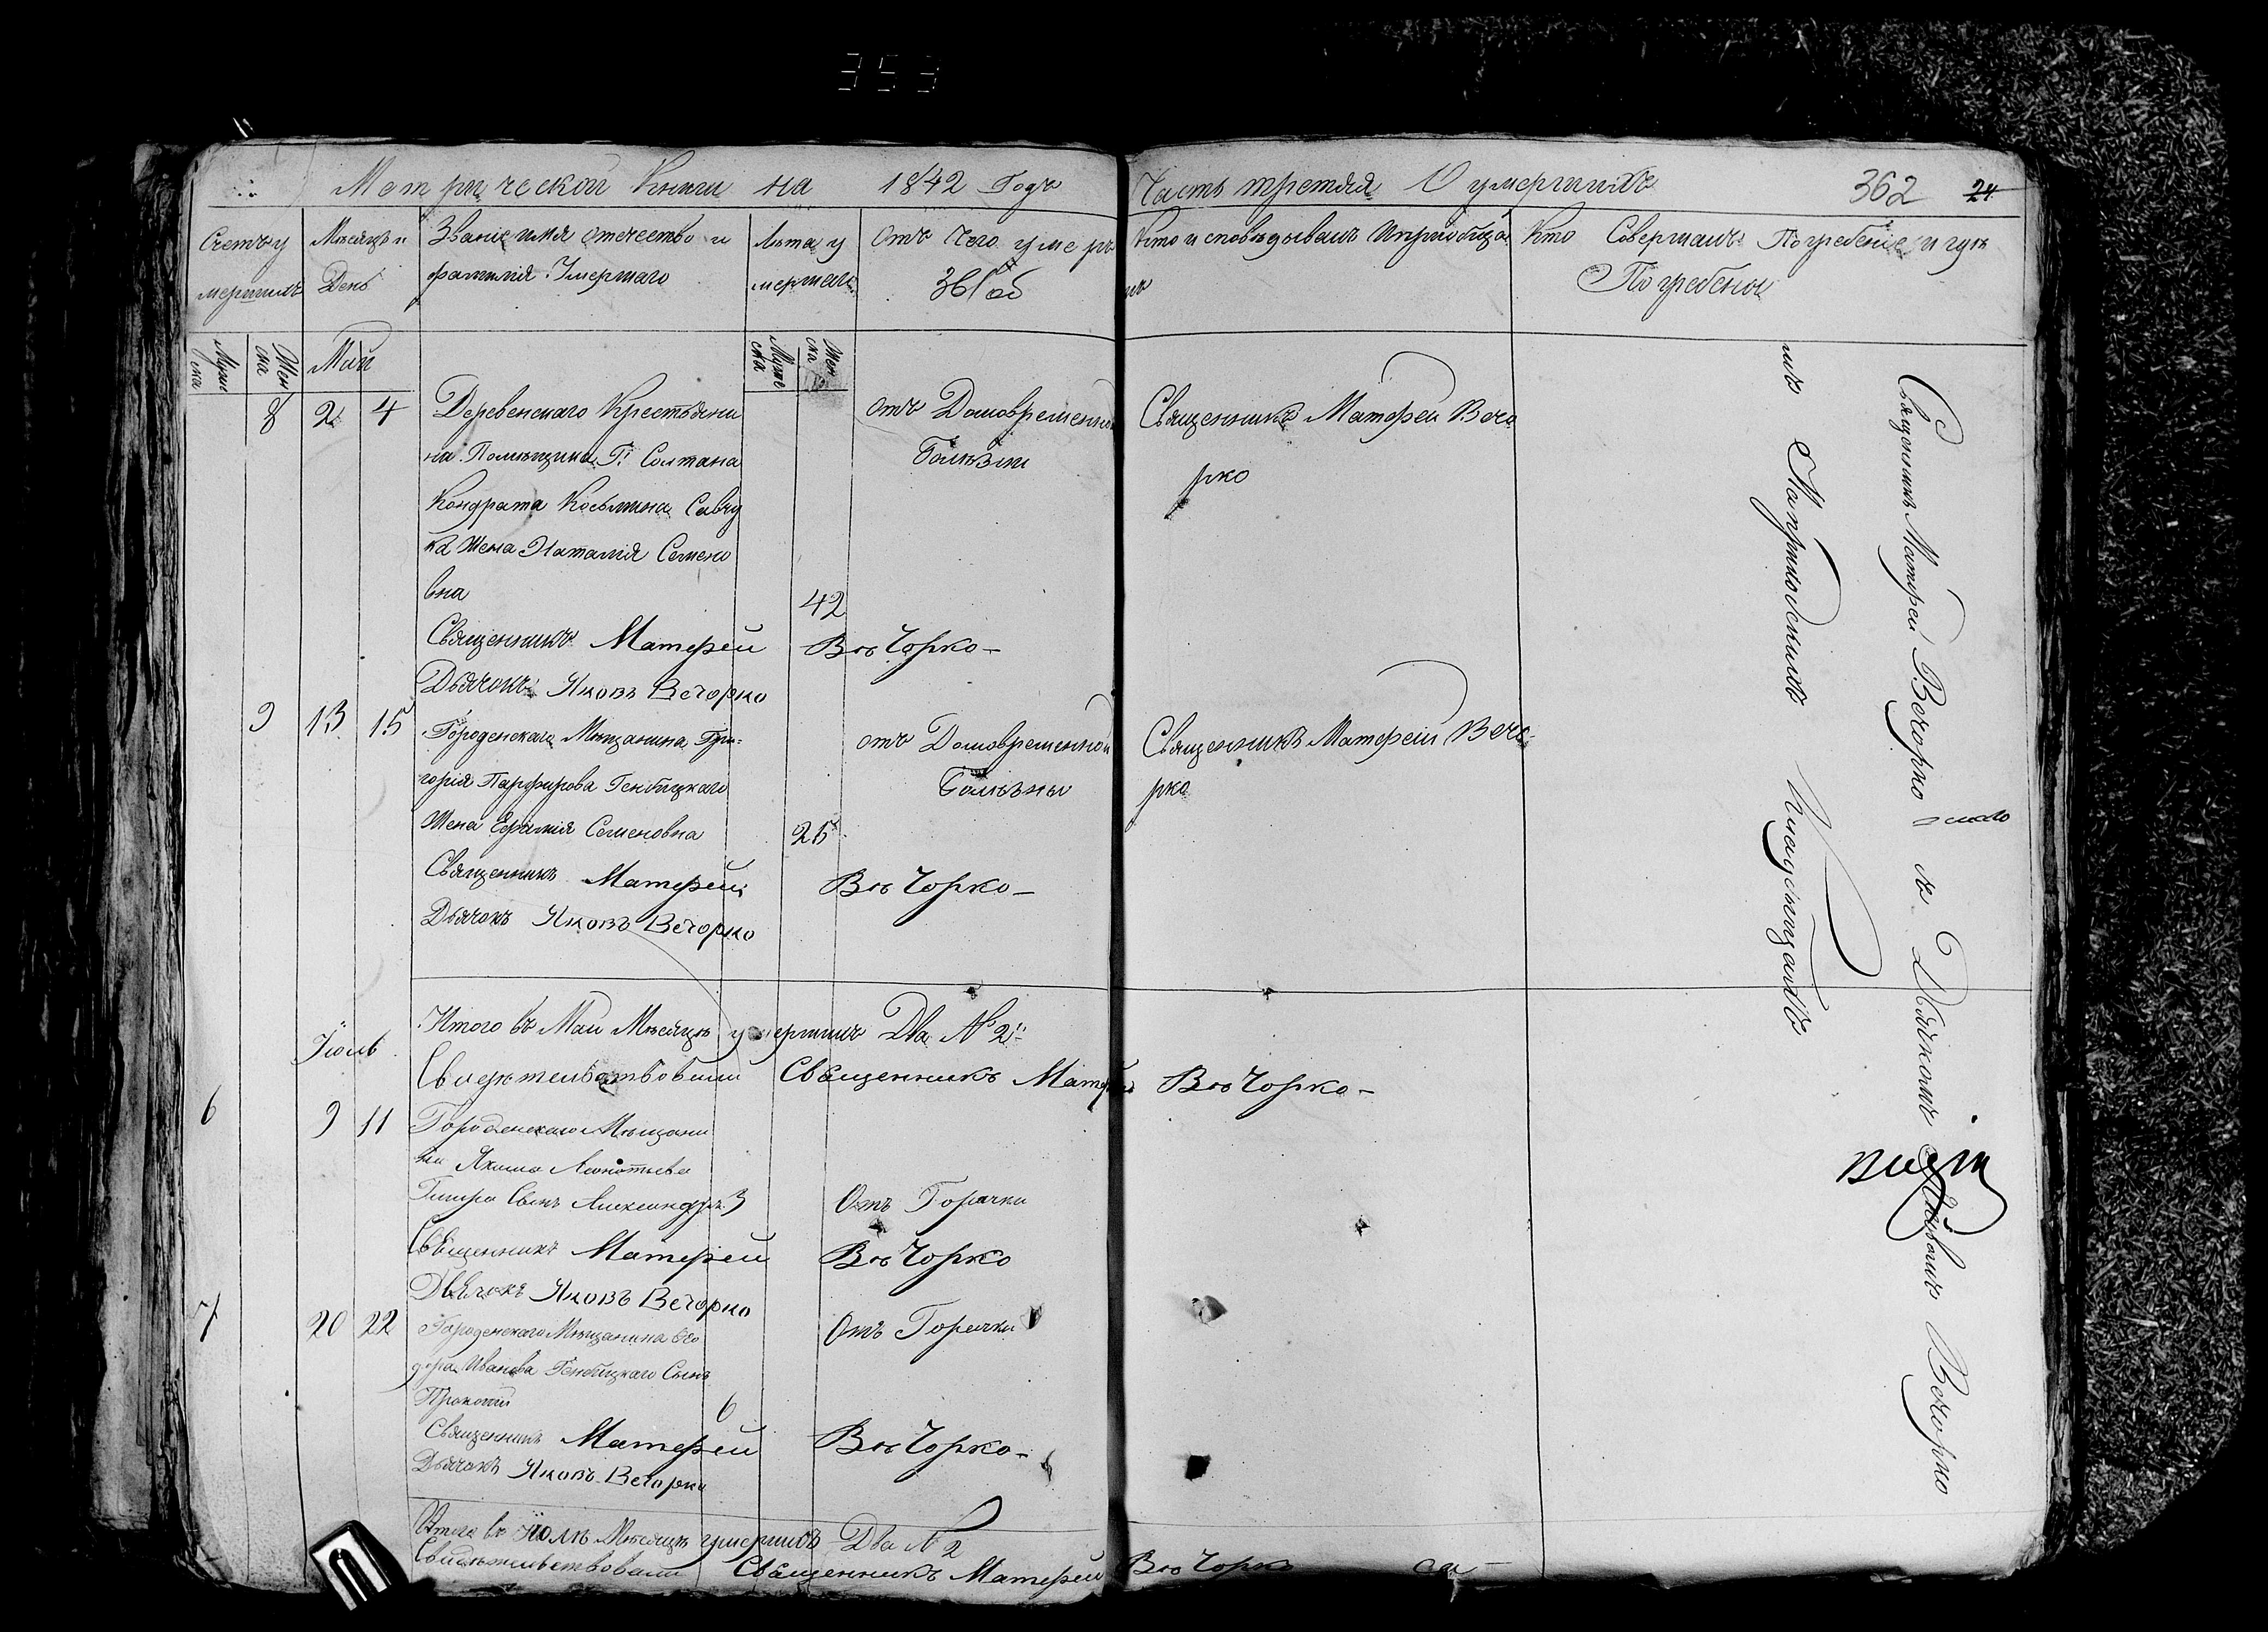 353
Метрической Книги на 1842 Годъ
Часть третяя О умершихъ 362 24
Счетъ у
мершихъ
Мѣсяцъ и
День
Званіе имя отечество и
фамилія Умершаго
Лѣта у
мершаго
Отъ Чего умеръ
361 об
Кто исповѣдывалъ и приобща
лъ
Кто Совершалъ Погребеніе и гдѣ
Погребены
Муже
ска
Жен
ска
Май
Муже
ска
Жен
ска
8 2 4 Деревенскаго Крестьяни
на Помѣщика Г: Солтана
Кондрата Косьмина Савчу
ка Жена Наталія Семено
вна 42
отъ Долговременной
Болѣзни
Священникъ Матфей Вечо
рко
Священникъ Матфей Вѣчорко
Дьячокъ Яковъ Вечорко
9 13 15 Городенскаго Мѣщанина Гри-
горія Парфирова Генбицкаго
Жена Ефимія Семеновна 25
отъ Долговременной
Болѣзны
Священникъ Матфей Вечо-
рко
Священникъ Матфей Вѣчорко
Дьячокъ Яковъ Вечорко
Итого въ Маи Мѣсяцѣ умершихъ Два № 2
Свидѣтельствовали Священникъ Матфей Вѣчорко
Іюль
6 9 11 Городенскаго Мѣщани
на Якима Леонтьева
Сынъ Александръ 3
Отъ Горачки
Священникъ Матфей Вѣчорко
Дьячокъ Яковъ Вечорко
7 20 22 Городенскаго Мѣщанина Ѳео
дора Иванова Генбицкаго Сынъ
Прокопій 6
Отъ Горачки
Священникъ Матфей Вѣчорко
Дьячокъ Яковъ Вечорко
Итого въ Іюлѣ Мѣсяцѣ умершихъ Два № 2
Свидѣтельствовали Священникъ Матфей Вѣчорко
Священникъ Матфей Вечорко съ Дьячкомъ Яковомъ Вечорко
Кладбищахъ